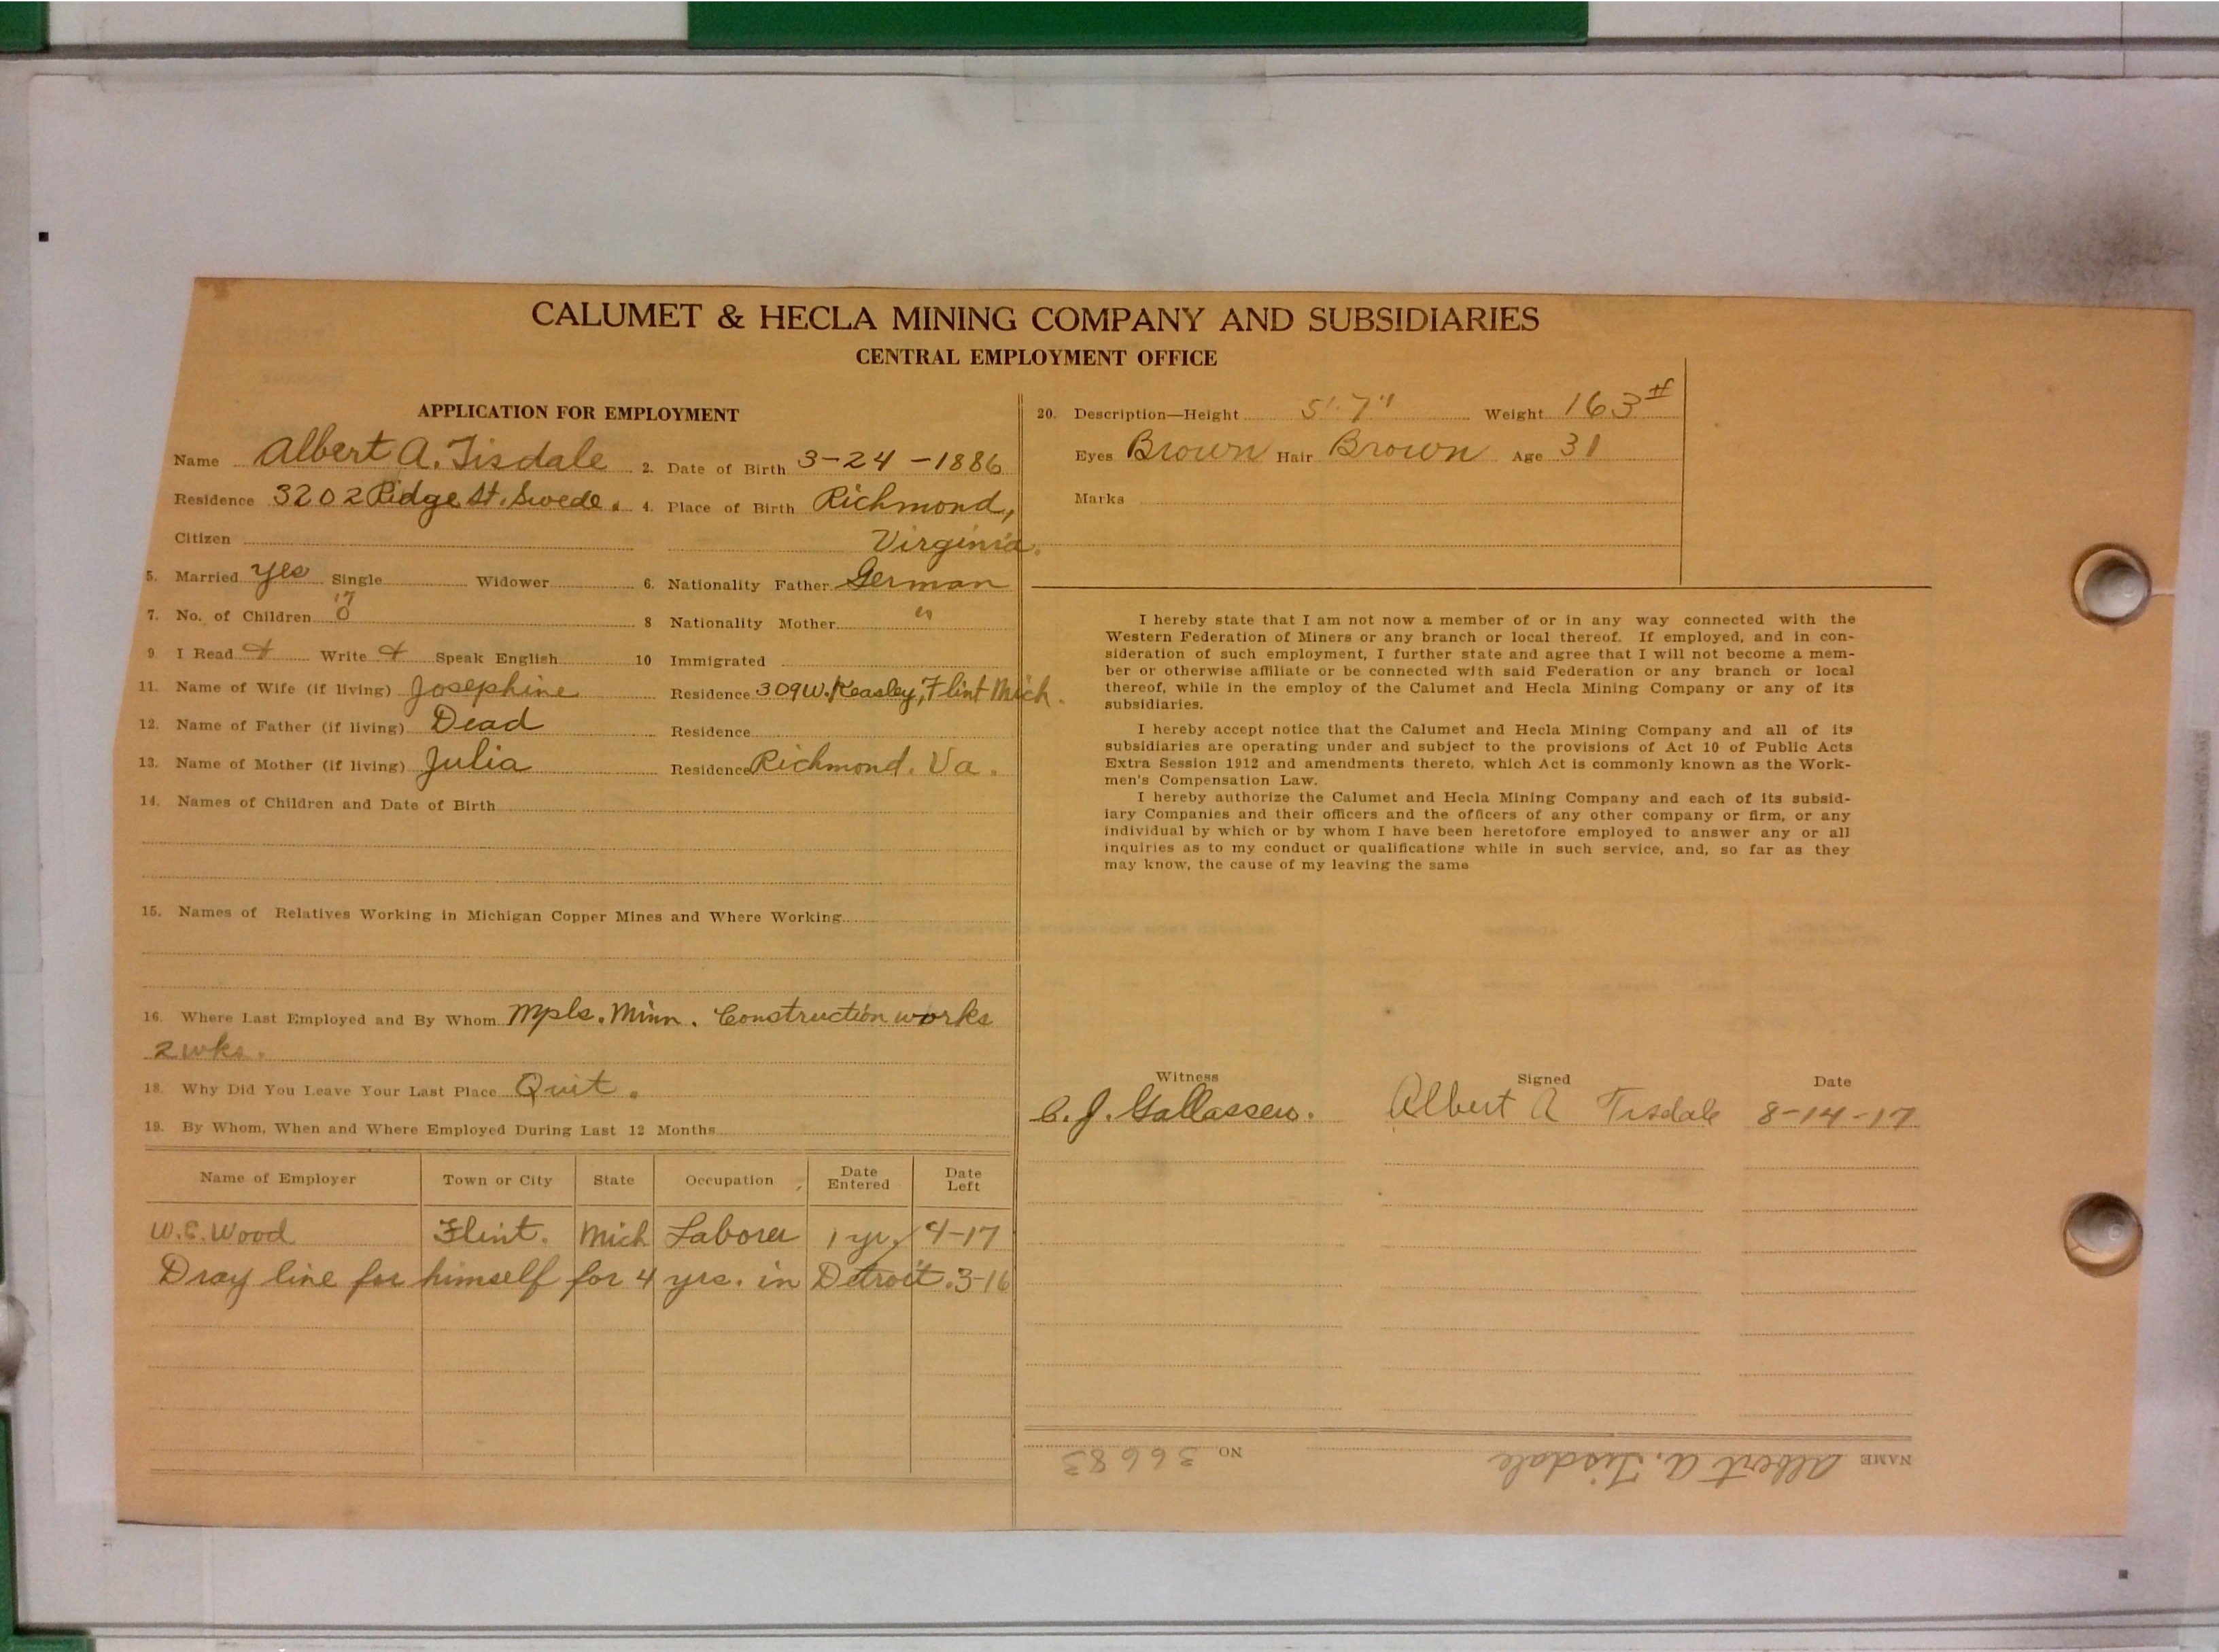 CALUMET & HECLA MINING COMPANY AND SUBSIDIARIES
CENTRAL EMPLOYMENT OFFICE
APPLICATION FOR EMPLOYMENT
Name Albert A. Tisdale 2. Date of Birth 3-24-1886
Residence 3202 Ridge St. Swede. 4. Place of Birth Richmond,
Citizen Virginia.
5. Married yes Single Widower 6. Nationality Father German
7. No. of Children 0 8 Nationality Mother "
9. I Read + Write + Speak English 10 Immigrated
11. Name of Wife (if living) Josephine Residence 309 W. Keasley, Flint Mich.
12. Name of Father (if living) Dead Residence
13. Name of Mother (if living) Julia Residence Richmond. Va.
14. Names of Children and Date of Birth
15. Names of Relatives Working in Michigan Copper Mines and Where Working
16. Where Last Employed and By Whom Mpls. Minn. Construction works
2 wks.
18. Why Did You Leave Your Last Place Quit.
19. By Whom, When and Where Employed During Last 12 Months
Name of Employer Town or City State Occupation Date Entered Date Left
W.E. Wood Flint. Mich Laborer 1 yr. 4-17
Dray line for himself for 4 yrs. in Detroit. 3-16
20. Description—Height 5'7" Weight 163#
Eyes Brown Hair Brown Age 31
Marks
I hereby state that I am not now a member of or in any way connected with the
Western Federation of Miners or any branch or local thereof. If employed, and in con-
sideration of such employment, I further state and agree that I will not become a mem-
ber or otherwise affiliate or be connected with said Federation or any branch or local
thereof, while in the employ of the Calumet and Hecla Mining Company or any of its
subsidiaries.
I hereby accept notice that the Calumet and Hecla Mining Company and all of its
subsidiaries are operating under and subject to the provisions of Act 10 of Public Acts
Extra Session 1912 and amendments thereto, which Act is commonly known as the Work-
men's Compensation Law.
I hereby authorize the Calumet and Hecla Mining Company and each of its subsid-
iary Companies and their officers and the officers of any other company or firm, or any
individual by which or by whom I have been heretofore employed to answer any or all
inquiries as to my conduct or qualifications while in such service, and, so far as they
may know, the cause of my leaving the same
Witness Signed Date
C. J. Gallassew. Albert A Tisdale 8-14-17
NAME Albert A. Tisdale NO 36683